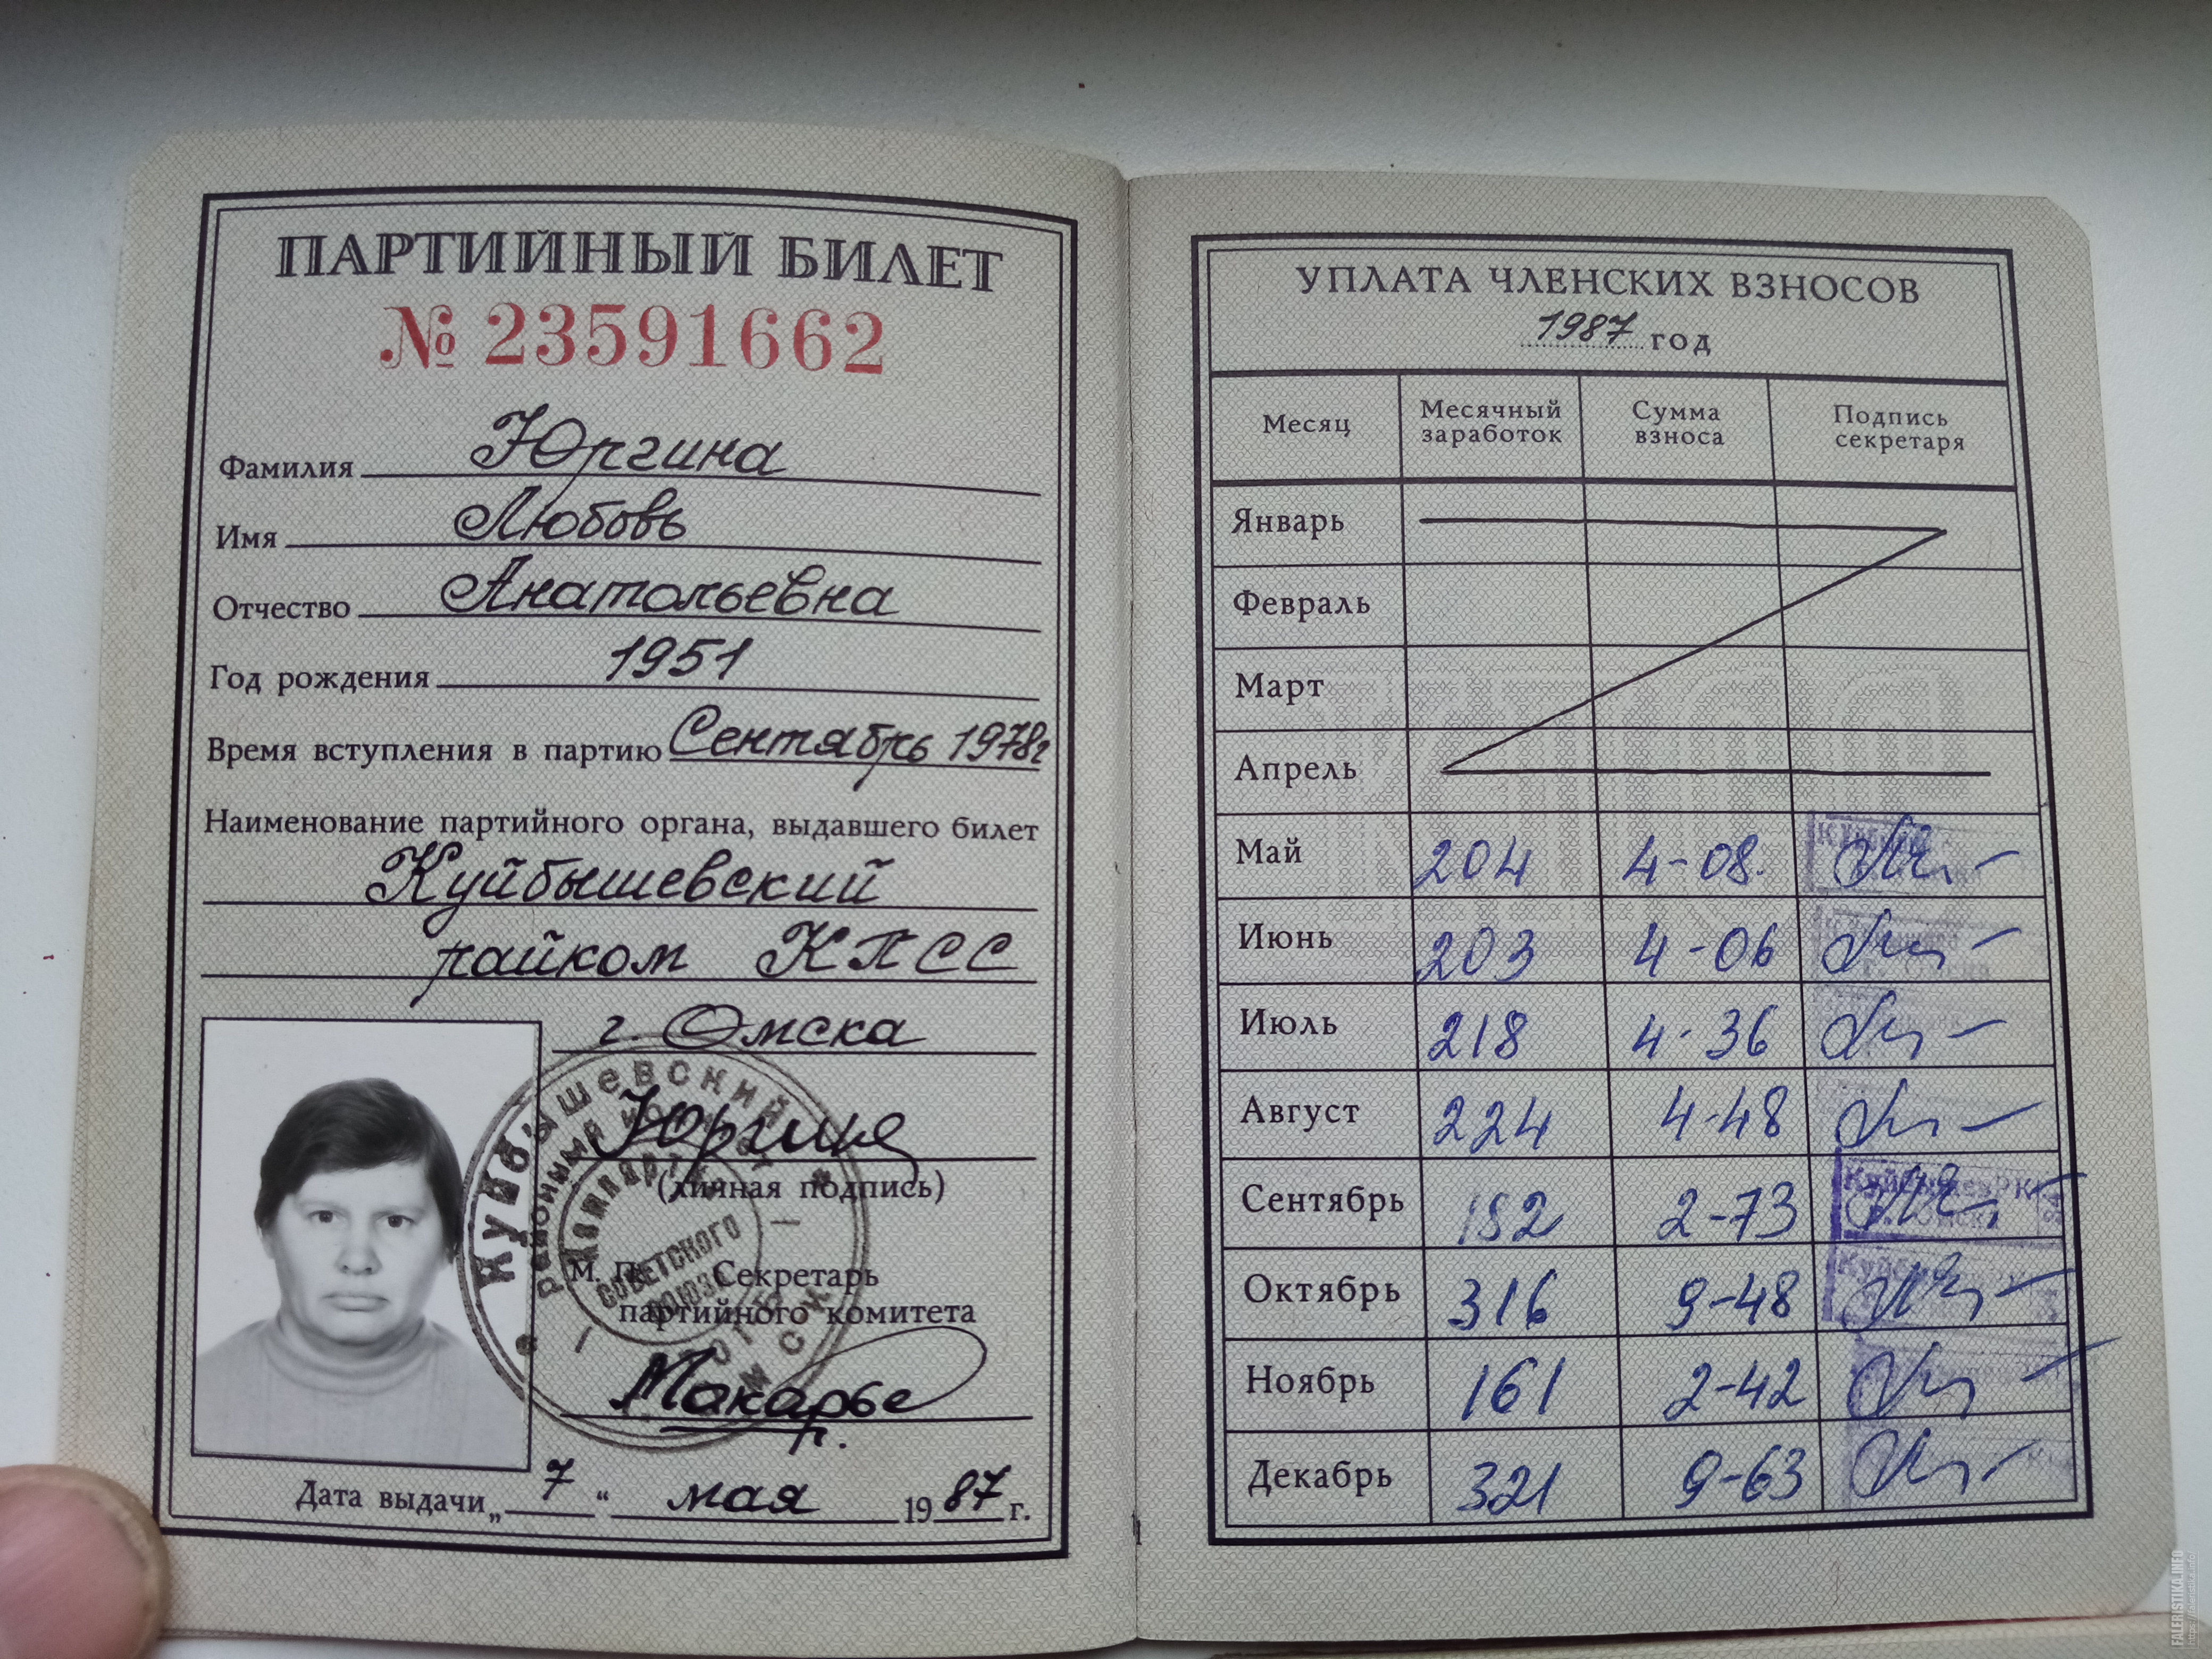 ПАРТИЙНЫЙ БИЛЕТ
№ 23591662
Фамилия Юргина
Имя Любовь
Отчество Анатольевна
Год рождения 1951
Время вступления в партию Сентябрь 1978г
Наименование партийного органа, выдавшего билет
Куйбышевский
райком КПСС
г. Омска
Юргина
(личная подпись)
М. П. Секретарь
партийного комитета
Куйбышевский
районный
СОВЕТСКОГО
СОЮЗА
Дата выдачи „ 7 “ мая 19 87 г.
УПЛАТА ЧЛЕНСКИХ ВЗНОСОВ
1987 год
Месяц Месячный заработок Сумма взноса Подпись секретаря
Январь
Февраль
Март
Апрель
Май 204 4-08.
Июнь 203 4-06
Июль 218 4-36
Август 224 4-48
Сентябрь 182 2-73
Октябрь 316 9-48
Ноябрь 161 2-42
Декабрь 321 9-63
FALERISTIKA.INFO
https://faleristika.info/